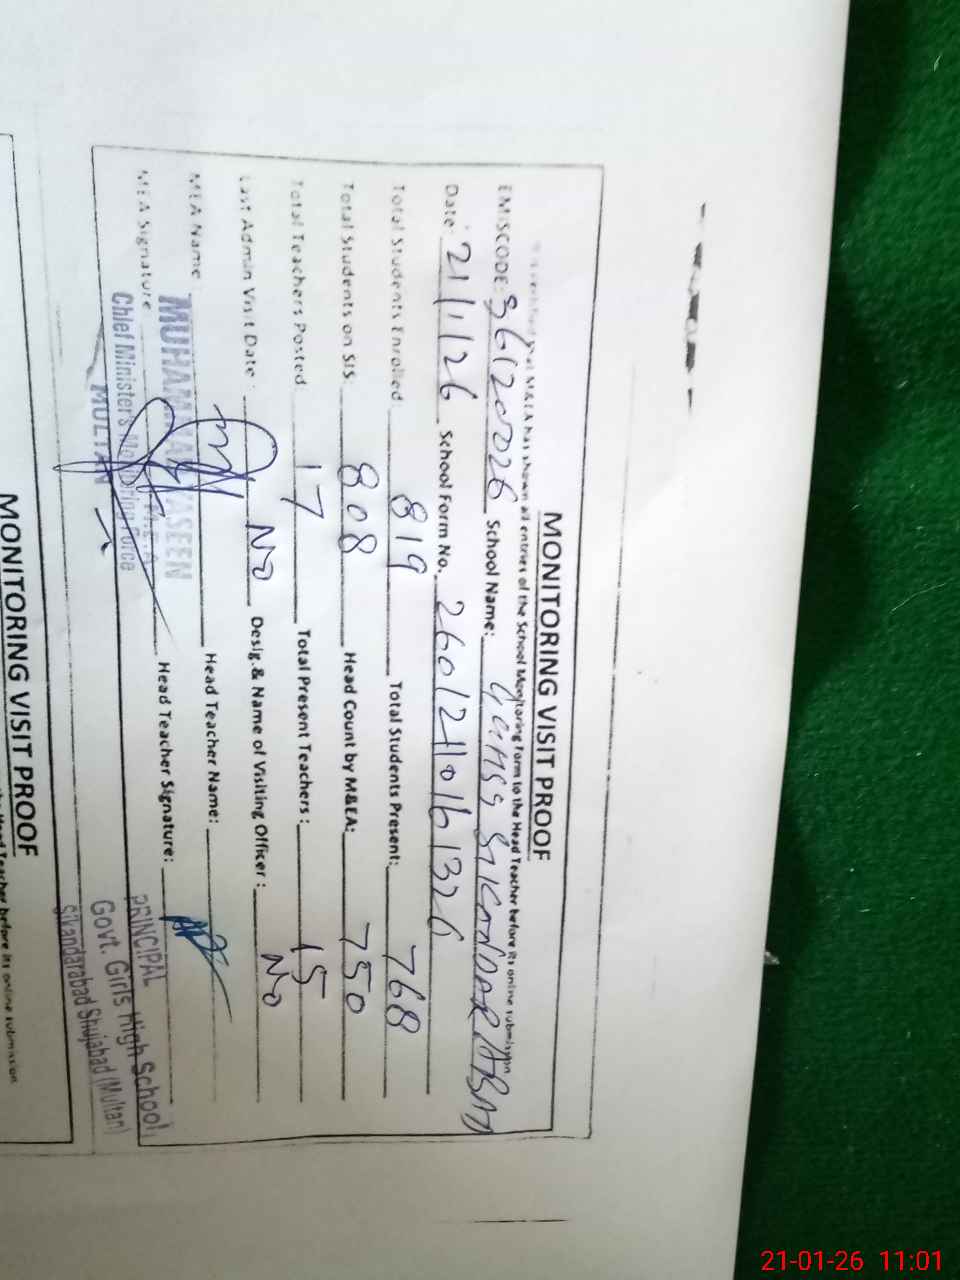 MONITORING VISIT PROOF
It is verified that M&EA has shown all entries of the School Monitoring form to the Head Teacher before its online submission
EMISCODE: 36120026 School Name: GGHSS SIKANDARABAD
Date: 21/1/26 School Form No. 2601210161326
Total Students Enrolled: 819 Total Students Present: 768
Total Students on SIS: 808 Head Count by M&EA: 750
Total Teachers Posted 17 Total Present Teachers: 15
Last Admin Visit Date: No Desig.& Name of Visiting Officer: No
MEA Name: MUHAMMAD YASEEN Head Teacher Name:
MEA Signature M.E.A Head Teacher Signature:
Chief Minister's Monitoring Force
MULTAN
PRINCIPAL
Govt. Girls High School
Sikandarabad Shujabad (Multan)
MONITORING VISIT PROOF
the Head Teacher before its online submission
21-01-26 11:01